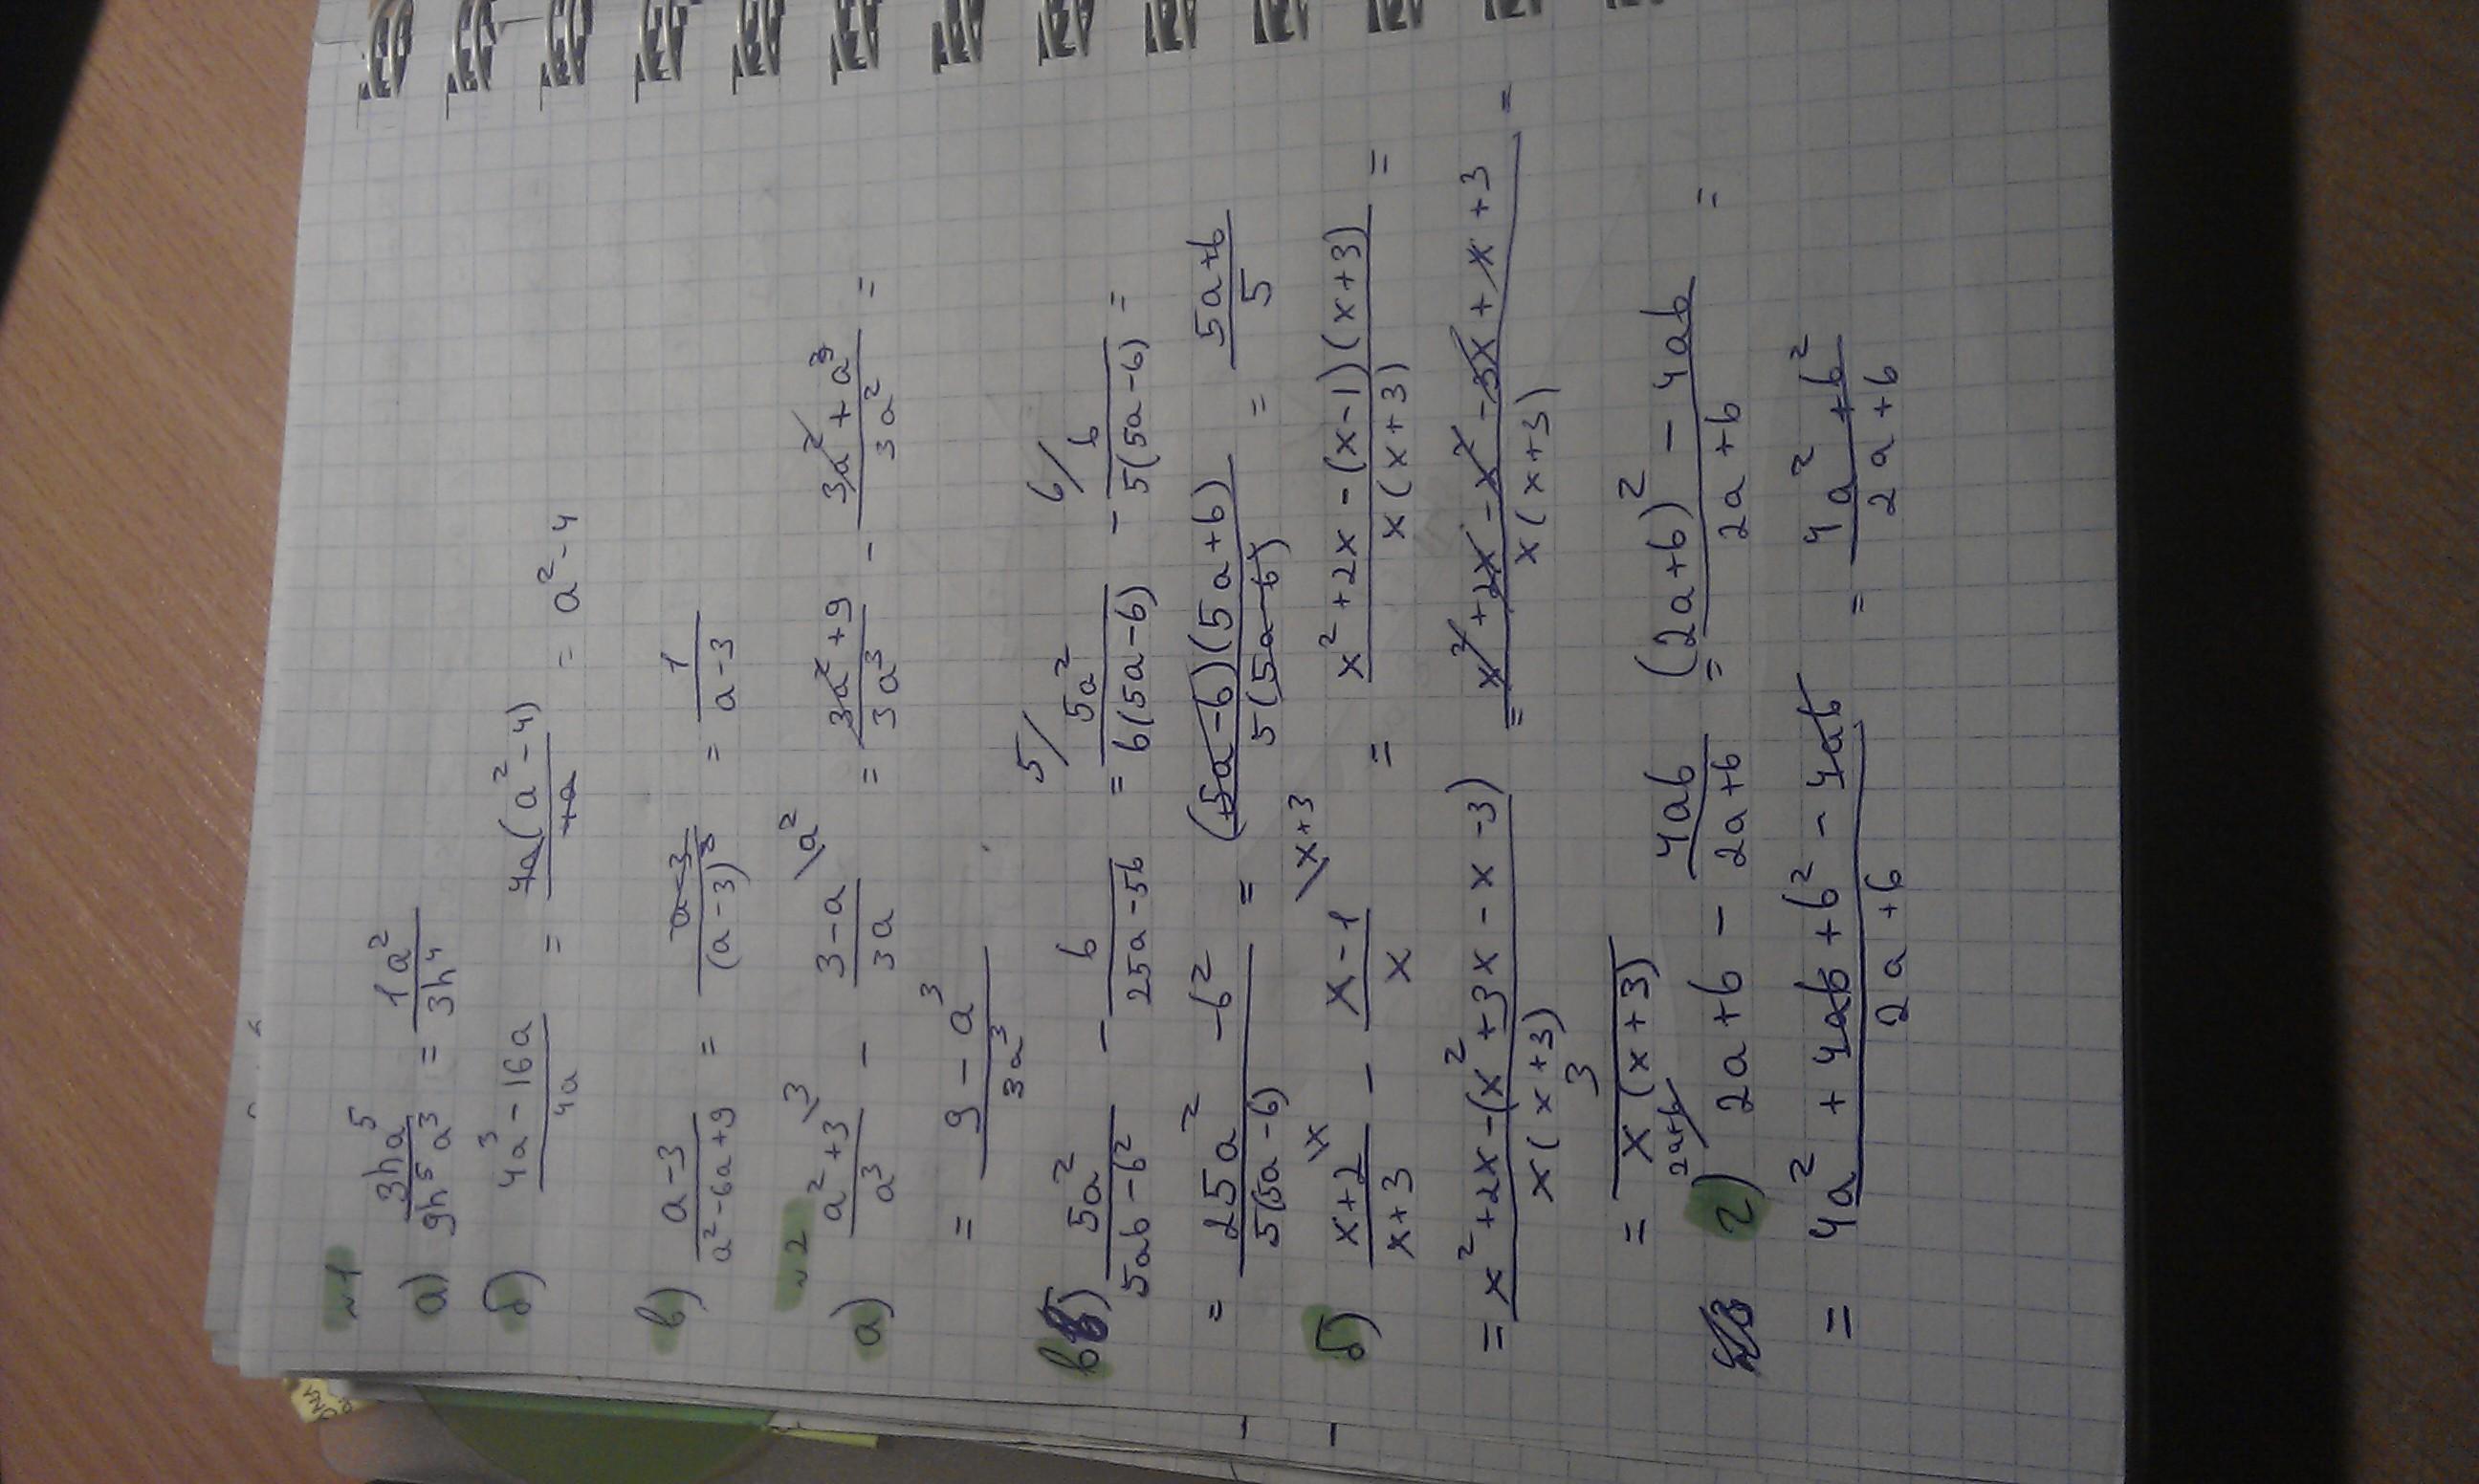 №1
а) 3ha⁵/9h⁵a³ = 1a²/3h⁴
б) 4a³-16a/4a = 4a(a²-4)/4a = a²-4
в) a-3/a²-6a+9 = a-3/(a-3)² = 1/a-3
№2
а) a²+3/a³ \3 - 3-a/3a \a² = 3a²+9/3a³ - 3a²+a³/3a² =
= 9-a³/3a³
в) 5a²/5ab-b² - b/25a-5b = 5/ 5a²/b(5a-b) - b/ b/5(5a-b) =
= 25a²-b²/5(5a-b) = (5a-b)(5a+b)/5(5a-b) = 5a+b/5
б) x+2/x+3 \x - x-1/x \x+3 = x²+2x-(x-1)(x+3)/x(x+3) =
= x²+2x-(x²+3x-x-3)/x(x+3) = x²+2x-x²-3x+x+3/x(x+3) =
= 3/x(x+3)
г) 2a+b/ 2a+b - 4ab/2a+b = (2a+b)²-4ab/2a+b =
= 4a²+4ab+b²-4ab/2a+b = 4a²+b²/2a+b